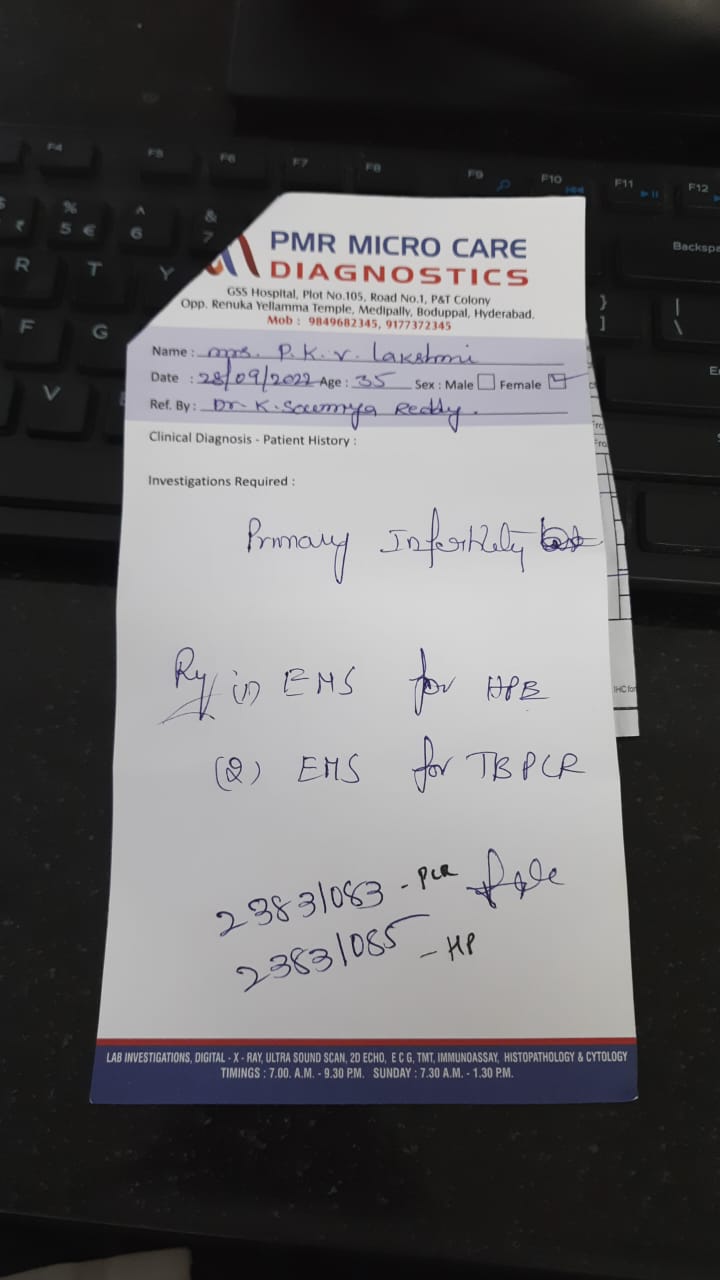 F4 F5 F6 F7 F8 F9 F10 F11 F12
% 5 € ^ 6 & 7 Backspa
R T Y } ]
F G | \
V
PMR MICRO CARE
DIAGNOSTICS
GSS Hospital, Plot No.105, Road No.1, P&T Colony
Opp. Renuka Yellamma Temple, Medipally, Boduppal, Hyderabad.
Mob : 9849682345, 9177372345
Name : mrs. P.K.V. Lakshmi
Date : 28/09/2022 Age : 35 Sex : Male Female
Ref. By : Dr K. Soumya Reddy.
Clinical Diagnosis - Patient History :
Investigations Required :
Primary Infertility
(1) EMS for HPE
(2) EMS for TBPCR
23831083 - PCR
23831085 - HP
IHC for
LAB INVESTIGATIONS, DIGITAL - X - RAY, ULTRA SOUND SCAN, 2D ECHO, E C G, TMT, IMMUNOASSAY, HISTOPATHOLOGY & CYTOLOGY
TIMINGS : 7.00. A.M. - 9.30 P.M. SUNDAY : 7.30 A.M. - 1.30 P.M.